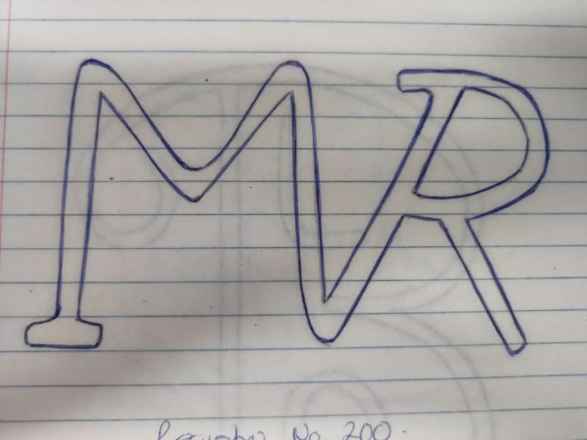 MR
No 200.